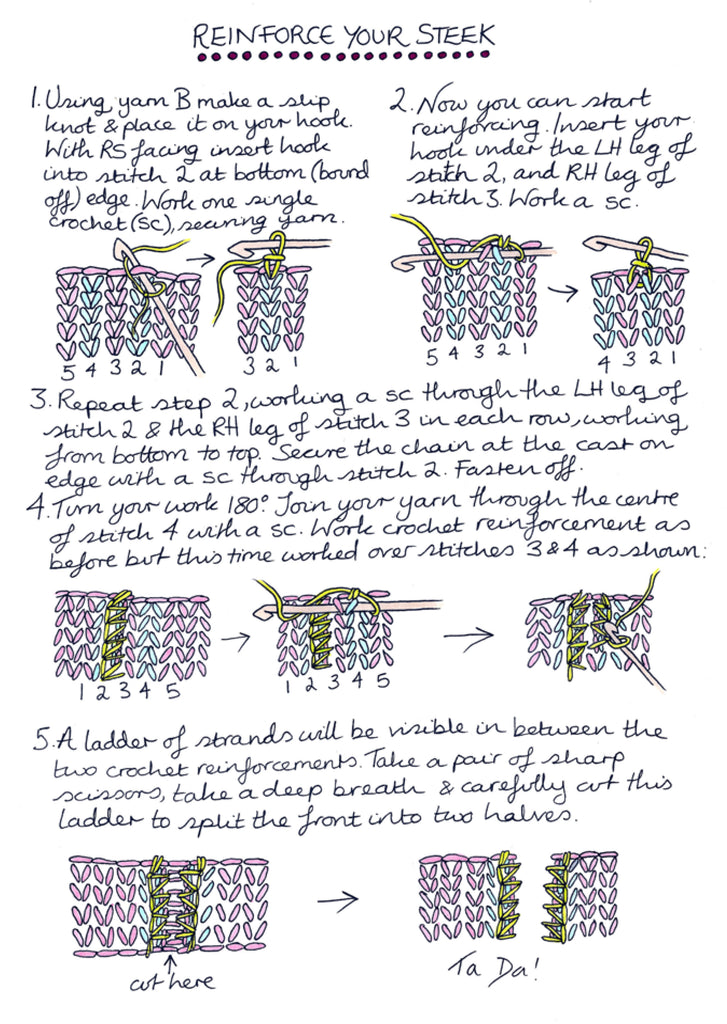 REINFORCE YOUR STEEK
1. Using yarn B make a slip
knot & place it on your hook.
With RS facing insert hook
into stitch 2 at bottom (bound
off) edge. Work one single
crochet (sc), securing yarn.
5 4 3 2 1
3 2 1
2. Now you can start
reinforcing. Insert your
hook under the LH leg of
stitch 2, and RH leg of
stitch 3. Work a sc.
5 4 3 2 1
4 3 2 1
3. Repeat step 2, working a sc through the LH leg of
stitch 2 & the RH leg of stitch 3 in each row, working
from bottom to top. Secure the chain at the cast on
edge with a sc through stitch 2. Fasten off.
4. Turn your work 180°. Join your yarn through the centre
of stitch 4 with a sc. Work crochet reinforcement as
before but this time worked over stitches 3 & 4 as shown:
1 2 3 4 5
1 2 3 4 5
5. A ladder of strands will be visible in between the
two crochet reinforcements. Take a pair of sharp
scissors, take a deep breath & carefully cut this
ladder to split the front into two halves.
cut here
Ta Da!